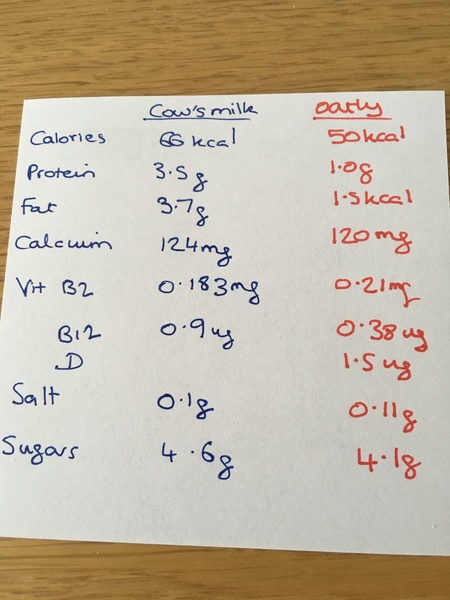 Cow's milk oatly
Calories 66 kcal 50kcal
Protein 3.5g 1.0g
Fat 3.7g 1.5kcal
Calcium 124mg 120mg
Vit B2 0.183mg 0.21mg
B12 0.9ug 0.38ug
D 1.5ug
Salt 0.1g 0.11g
Sugars 4.6g 4.1g